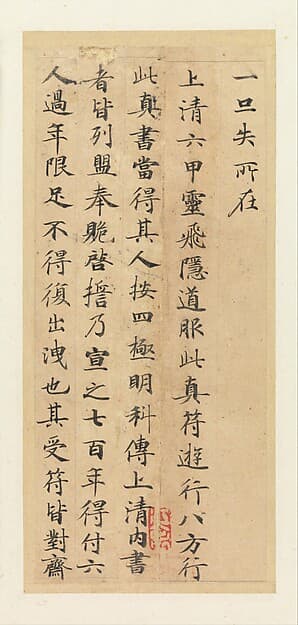 一旦失所在
上清六甲靈飛隱道服此真符遊行八方行
此真書當得其人按四極明科傳上清內書
者皆列盟奉貺啓誓乃宣之七百年得付六
人過年限足不得復出洩也其受符皆對齋